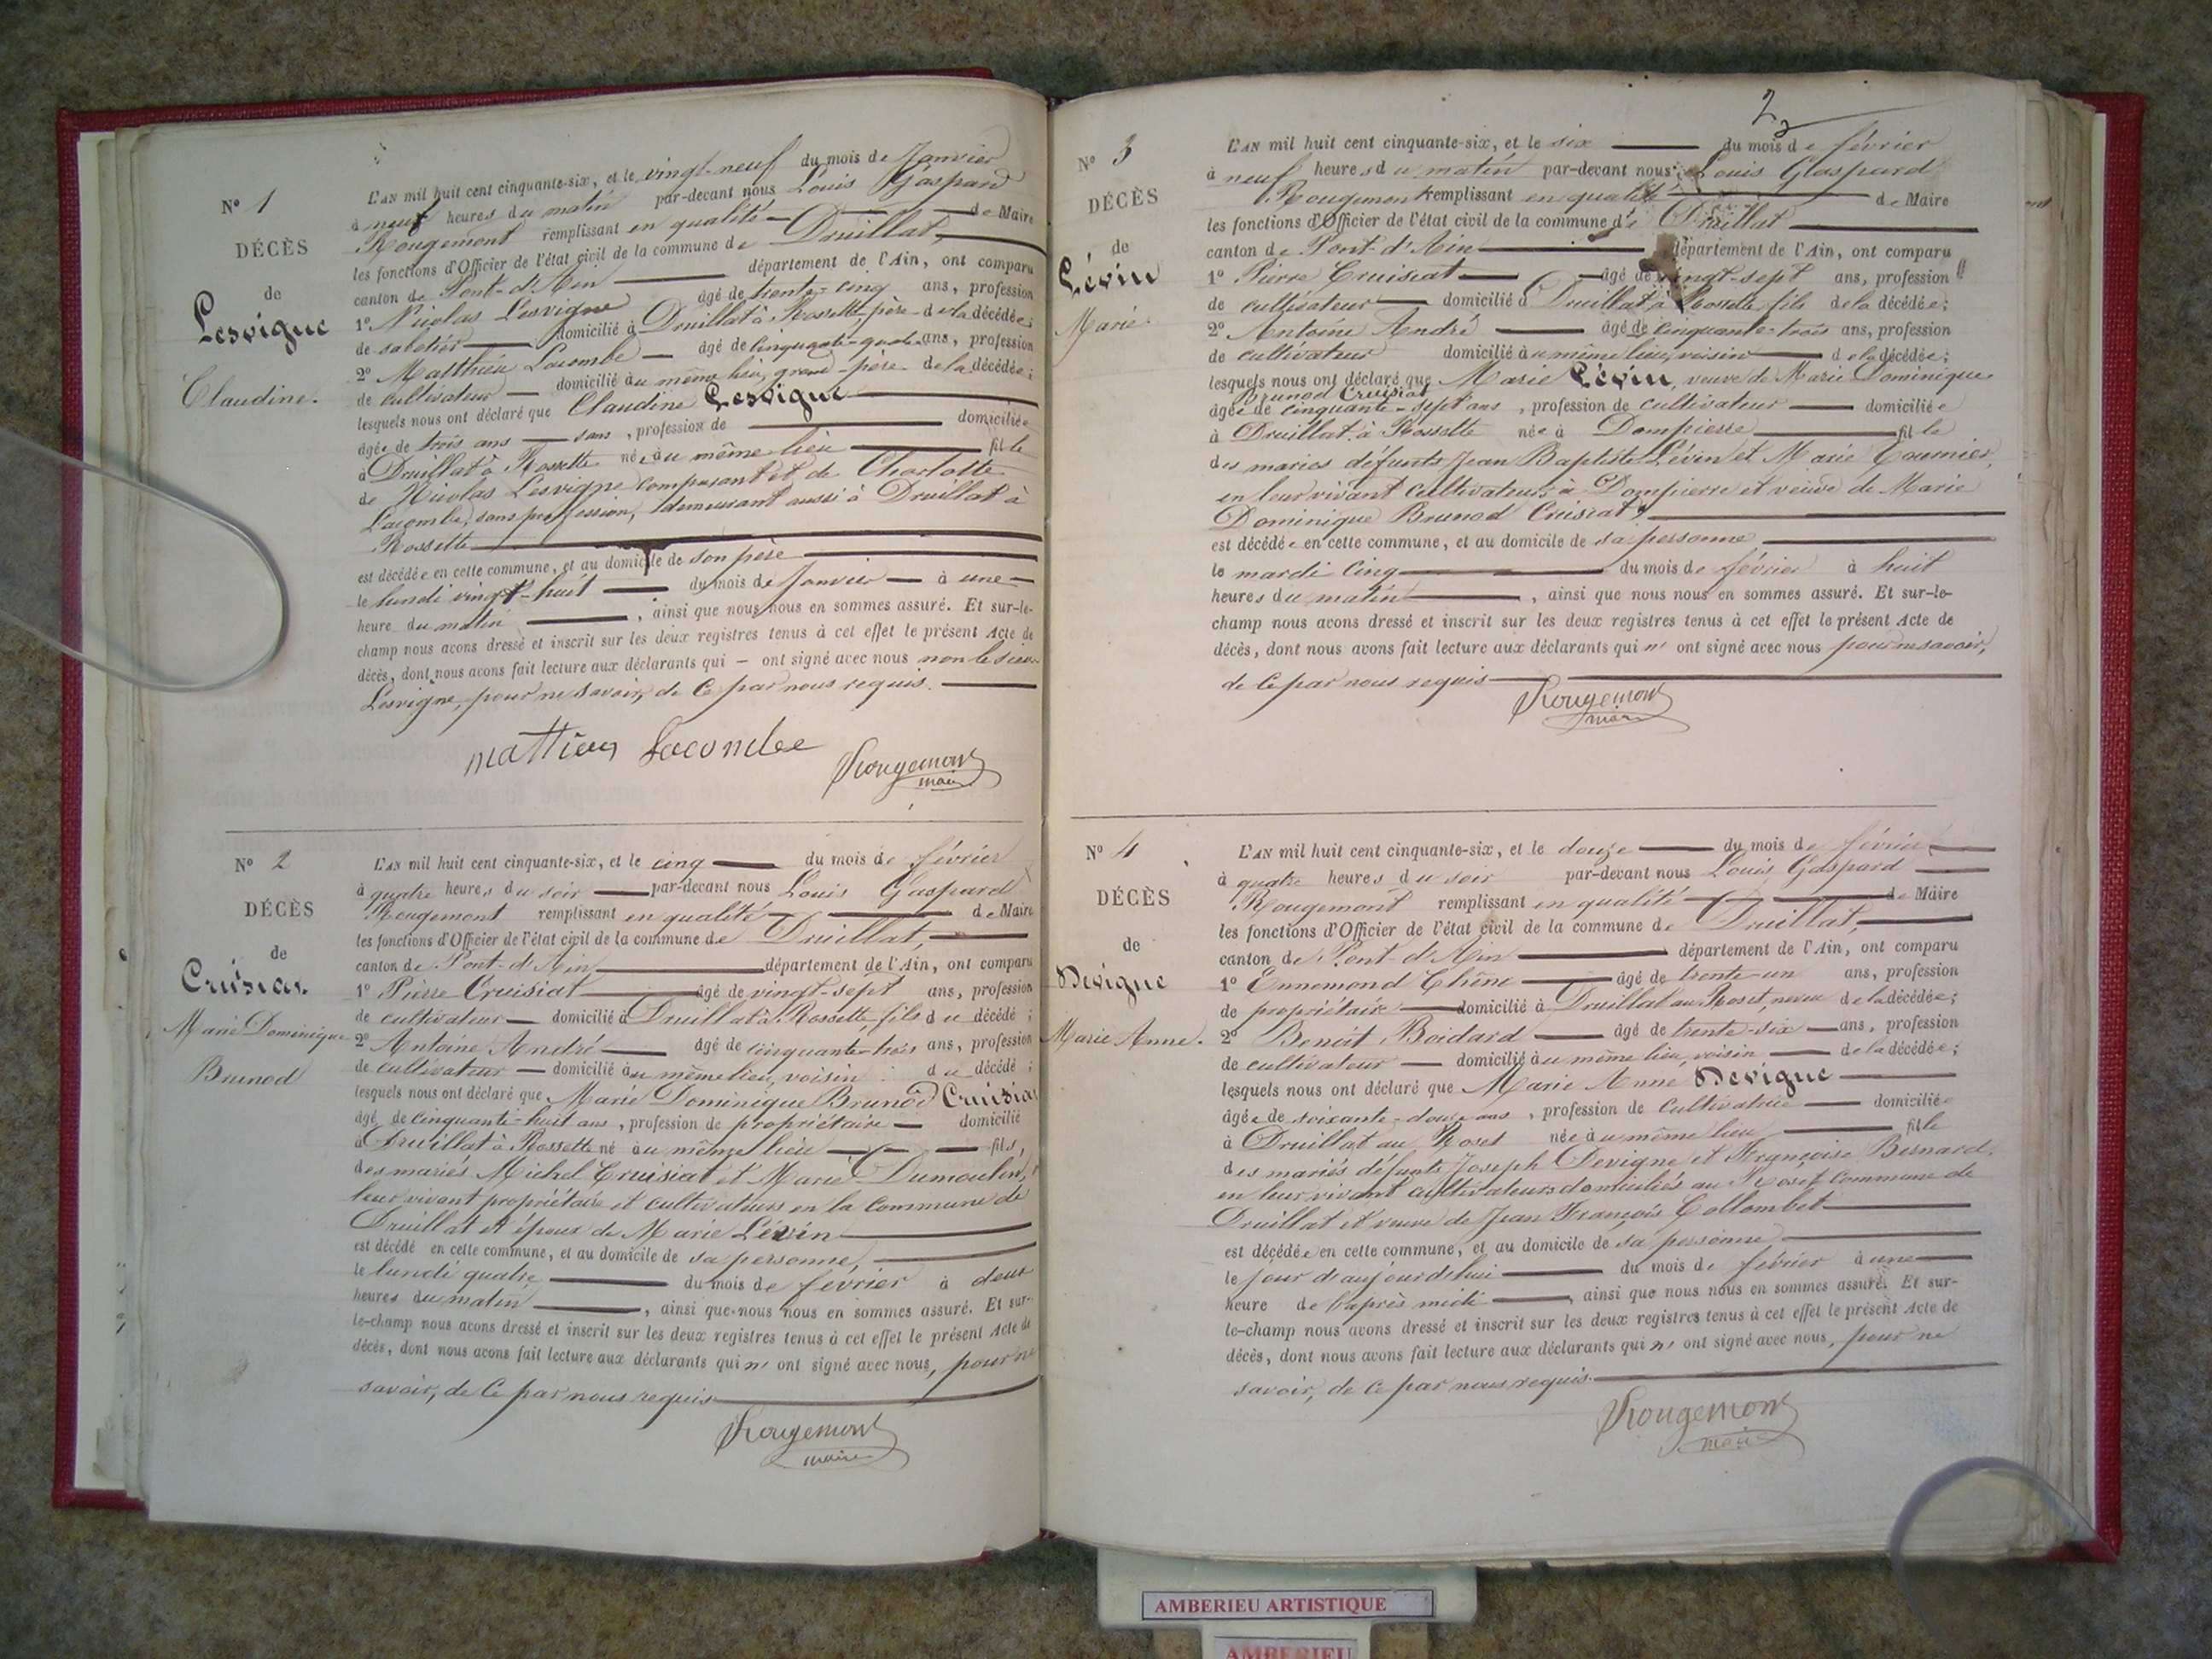 N° 1
DÉCÈS
de
Lesvigne
Claudine.
L'AN mil huit cent cinquante-six, et le vingt-neuf du mois de Janvier
à neuf heures du matin par-devant nous Louis Gaspard
Rougemont remplissant en qualité de Maire
les fonctions d'Officier de l'état civil de la commune de Druillat,
canton de Pont-d'Ain département de l'Ain, ont comparu
1° Nicolas Lesvigne âgé de trente-cinq ans, profession
de sabotier domicilié à Druillat à Rossette, père de la décédée;
2° Matthieu Lacombe âgé de cinquante-quatre ans, profession
de cultivateur domicilié au même lieu, grand-père de la décédée;
lesquels nous ont déclaré que Claudine Lesvigne
âgée de trois ans sans, profession de domiciliée
à Druillat à Rossette née au même lieu fille
de Nicolas Lesvigne comparant et de Charlotte
Lacombe, sans profession, demeurant aussi à Druillat à
Rossette
est décédée en cette commune, et au domicile de son père
le lundi vingt-huit du mois de Janvier à une
heure du matin, ainsi que nous nous en sommes assuré. Et sur-le-
champ nous avons dressé et inscrit sur les deux registres tenus à cet effet le présent Acte de
décès, dont nous avons fait lecture aux déclarants qui ont signé avec nous non le sieur
Lesvigne, pour ne savoir, de ce par nous requis.
mathieu Lacombe Rougemont
maire
N° 2
DÉCÈS
de
Cruisiat.
Marie Dominique
Brunod
L'AN mil huit cent cinquante-six, et le cinq du mois de février
à quatre heures du soir par-devant nous Louis Gaspard
Rougemont remplissant en qualité de Maire
les fonctions d'Officier de l'état civil de la commune de Druillat,
canton de Pont-d'Ain département de l'Ain, ont comparu
1° Pierre Cruisiat âgé de vingt-sept ans, profession
de cultivateur domicilié à Druillat à Rossette, fils du décédé;
2° Antoine André âgé de cinquante-trois ans, profession
de cultivateur domicilié au même lieu, voisin du décédé;
lesquels nous ont déclaré que Marie Dominique Brunod Cruisiat
âgé de cinquante-huit ans, profession de propriétaire domicilié
à Druillat à Rossette né au même lieu fils,
des mariés Michel Cruisiat et Marie Dumoulin,
leur vivant propriétaire et cultivateurs en la commune de
Druillat et époux de Marie Lévin
est décédé en cette commune, et au domicile de sa personne,
le lundi quatre du mois de février à deux
heures du matin, ainsi que nous nous en sommes assuré. Et sur-
le-champ nous avons dressé et inscrit sur les deux registres tenus à cet effet le présent Acte de
décès, dont nous avons fait lecture aux déclarants qui n' ont signé avec nous, pour ne
savoir, de ce par nous requis
Rougemont
maire
2
N° 3
DÉCÈS
de
Lévin
Marie
L'AN mil huit cent cinquante-six, et le six du mois de février
à neuf heures du matin par-devant nous Louis Gaspard
Rougemont remplissant en qualité de Maire
les fonctions d'Officier de l'état civil de la commune de Druillat
canton de Pont-d'Ain département de l'Ain, ont comparu
1° Pierre Cruisiat âgé de vingt-sept ans, profession
de cultivateur domicilié à Druillat à Rossette fils de la décédée;
2° Antoine André âgé de cinquante-trois ans, profession
de cultivateur domicilié au même lieu, voisin de la décédée;
lesquels nous ont déclaré que Marie Lévin, veuve de Marie Dominique
Brunod Cruisiat
âgée de cinquante-sept ans, profession de cultivateur domiciliée
à Druillat à Rossette née à Dompierre fille
des mariés défunts Jean Baptiste Lévin et Marie Tournier,
en leur vivant cultivateurs à Dompierre et veuve de Marie
Dominique Brunod Cruisiat
est décédée en cette commune, et au domicile de sa personne
le mardi cinq du mois de février à huit
heures du matin, ainsi que nous nous en sommes assuré. Et sur-le-
champ nous avons dressé et inscrit sur les deux registres tenus à cet effet le présent Acte de
décès, dont nous avons fait lecture aux déclarants qui n' ont signé avec nous pour ne savoir,
de ce par nous requis
Rougemont
maire
N° 4
DÉCÈS
de
Devigne
Marie Anne.
L'AN mil huit cent cinquante-six, et le douze du mois de février
à quatre heures du soir par-devant nous Louis Gaspard
Rougemont remplissant en qualité de Maire
les fonctions d'Officier de l'état civil de la commune de Druillat,
canton de Pont-d'Ain département de l'Ain, ont comparu
1° Ennemond Chêne âgé de trente-un ans, profession
de propriétaire domicilié à Druillat au Roset, neveu de la décédée;
2° Benoit Boidard âgé de trente-six ans, profession
de cultivateur domicilié au même lieu, voisin de la décédée;
lesquels nous ont déclaré que Marie Anne Devigne
âgée de soixante-douze ans, profession de cultivatrice domiciliée
à Druillat au Roset née au même lieu fille
des mariés défunts Joseph Devigne et Françoise Bernard,
en leur vivant cultivateurs domiciliés au Roset commune de
Druillat et veuve de Jean François Collombet
est décédée en cette commune, et au domicile de sa personne
le jour de aujourdehui du mois de février à une
heure de l'après midi, ainsi que nous nous en sommes assuré. Et sur-
le-champ nous avons dressé et inscrit sur les deux registres tenus à cet effet le présent Acte de
décès, dont nous avons fait lecture aux déclarants qui n' ont signé avec nous, pour ne
savoir, de ce par nous requis.
Rougemont
maire
AMBERIEU ARTISTIQUE
AMBERIEU